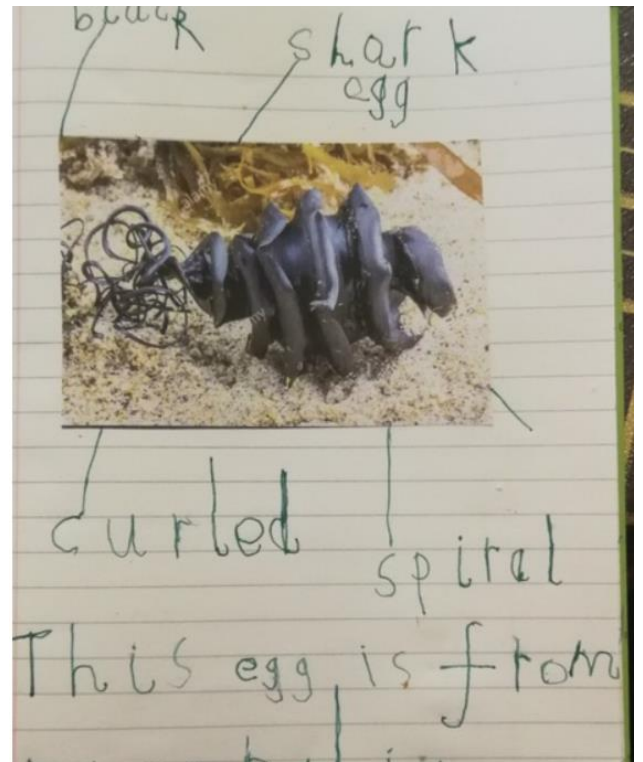 black
shark
egg
curled
spiral
This egg is from